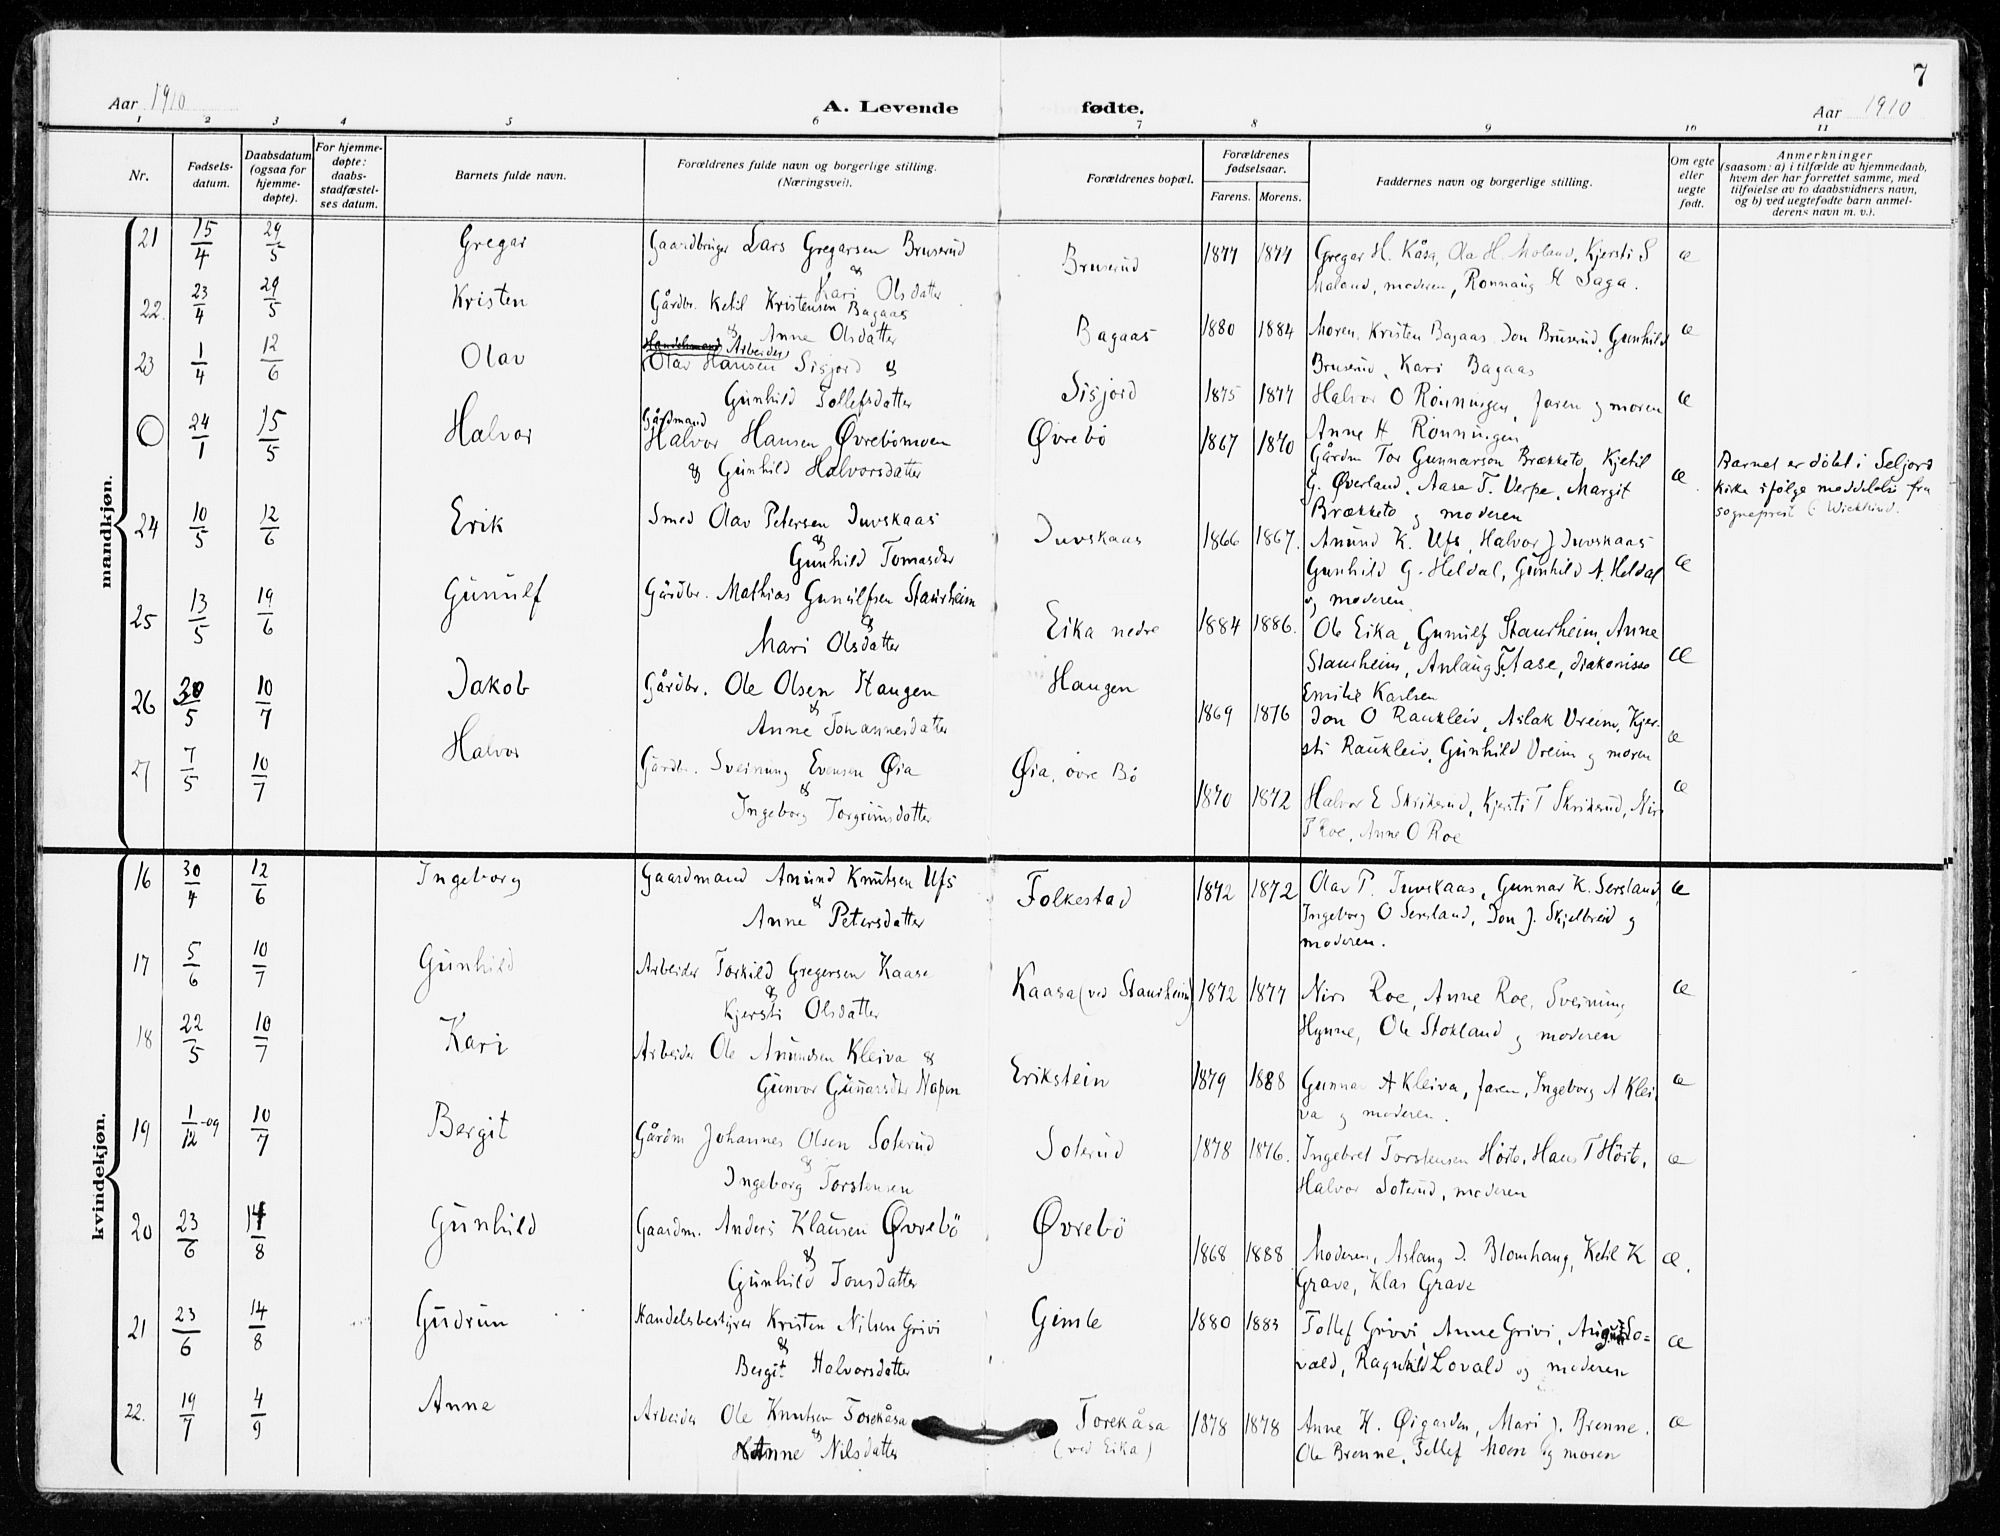 7
Aar 1910
A. Levende fødte.
Aar 1910
1 2 3 4 5 6 7 8 9 10 11
Nr.
Fødsels-
datum.
Daabsdatum
(ogsaa for
hjemme-
døpte).
For hjemme-
døpte:
daabs-
stadfæstel-
ses datum.
Barnets fulde navn.
Forældrenes fulde navn og borgerlige stilling.
(Næringsvei).
Forældrenes bopæl.
Forældrenes
fødselsaar.
Farens. Morens.
Faddernes navn og borgerlige stilling.
Om egte
eller
uegte
født.
Anmerkninger
(saasom: a) i tilfælde av hjemmedaab,
hvem der har forrettet samme, med
tilføielse av to daabsvidners navn,
og b) ved uegtefødte barn anmel-
derens navn m. v.).
mandkjøn.
21 15/4 29/5 Gregar Gaardbruger Lars Gregarsen Bruserud
& Kari Olsdatter
Bruserud 1877 1877 Gregar H. Kåsa, Ola H. Moland, Kjersti S
Moland, moderen, Ronnaug H Saga. æ
22. 23/4 29/5 Kristen Gårdbr. Ketil Kristensen Bagaas
& Anne Olsdatter
Bagaas 1880 1884 Moren, Kristen Bagaas, Jon Bruserud, Gunhild
Bruserud, Kari Bagaas æ
23 1/4 12/6 Olav Handelsmand Arbeider
Olav Hansen Sisjord &
Gunhild Tollefsdatter
Sisjord 1875 1877 Halvor O Rönningen, faren og moren
Anne H Rönningen æ
O 24/1 15/5 Halvor Gårdmand
Halvor Hansen Øvrebömoen
& Gunhild Halvorsdatter
Øvrebö 1867 1870 Gårdm Tor Gunnarson Brækketo, Kjetil
G. Øverland, Aase T. Verpe, Margit
Brækketo og moderen æ.
Barnet er döbt i Seljord
kirke ifölge meddelelse fra
sogneprest
24 10/5 12/6 Erik Smed Olav Petersen Juvskaas
& Gunhild Tomasdtr
Juvskaas 1866 1867. Anund K. Ufs, Halvor J Juvskaas
Gunhild G. Heldal, Gunhild A. Heldal
og moderen. æ
25 13/5 19/6 Gunulf Gårdbr. Mathias Gunulfsen Staurheim
& Mari Olsdatter
Eika nedre 1884 1886. Ole Eika, Gunulf Staurheim, Anne
Staurheim, Anlaug T. Aase, diakonisse
Emilie Karlsen æ
26 30/5 10/7 Jakob Gårdbr. Ole Olsen Haugen
& Anne Johannesdatter
Haugen 1869 1876 Jon O Raukleiv, Aslak Vreim, Kjer-
sti Raukleiv, Gunhild Vreim og moren æ
27 7/5 10/7 Halvor Gårdbr. Sveinung Evensen Øia
& Ingeborg Torgrimsdatter
Øia, övre Bö 1870 1872 Halvor E Skrikerud, Kjersti T Skrikerud, Nirs
T Roe, Anne O Roe æ
kvindekjøn.
16 30/4 12/6 Ingeborg Gaardmand Anund Knutsen Ufs
& Anne Petersdatter
Folkestad 1872 1872 Olav P. Juvskaas, Gunnar K. Sersland,
Ingeborg O Sersland, Jon J. Skjelbreid og
moderen. æ
17 5/6 10/7 Gunhild Arbeider Torkild Gregersen Kaase
& Kjersti Olsdatter
Kaasa (ved Staurheim) 1872 1877 Nirs Roe, Anne Roe, Sveinung
Hynne, Ole Stokland og moderen æ
18 22/5 10/7 Kari Arbeider Ole Anundsen Kleiva &
Gunvor Gunarsdtr Napen
Erikstein 1879 1888 Gunnar A Kleiva, faren, Ingeborg A Klei-
va og moderen. æ
19 1/12 -09 10/7 Bergit Gårdm Johannes Olsen Soterud
& Ingeborg Torstensen
Soterud 1878 1876. Ingebret Torstensen Hörte, Hans T Hörte,
Halvor Soterud, moderen æ
20 23/6 14/8 Gunhild Gaardm. Anders Klausen Øvrebö
& Gunhild Jonsdatter
Øvrebö 1868 1888 Moderen, Aslaug J. Blomhaug, Ketil K
Grave, Klas Grave æ.
21 23/6 14/8 Gudrun Handelsbestyrer Kristen Nilsen Grivi
& Bergit Halvorsdatter
Gimle 1880 1883 Tollef Grivi, Anne Grivi, August Lo=
vald, Ragnhild Lovald og moderen æ
22. 19/7 4/9 Anne Arbeider Ole Knutsen Torekåsa
& Anne Nilsdatter
Torekåsa
(ved Eika) 1878 1878 Anne H. Øigarden, Mari J. Brenne.
Ole Brenne, Tellef Moen og moren æ